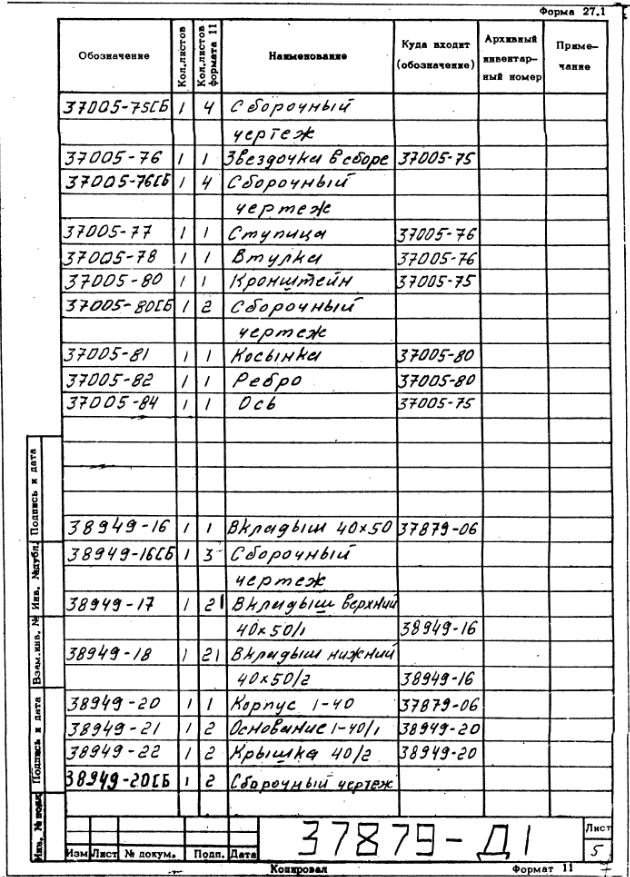 Форма 27.1
Обозначение Кол.листов Кол.листов формата 11 Наименование Куда входит (обозначение) Архивный инвентар- ный номер Приме- чание
37005-75СБ 1 4 Сборочный
чертеж
37005-76 1 1 Звездочка в сборе 37005-75
37005-76СБ 1 4 Сборочный
чертеж
37005-77 1 1 Ступица 37005-76
37005-78 1 1 Втулка 37005-76
37005-80 1 1 Кронштейн 37005-75
37005-80СБ 1 2 Сборочный
чертеж
37005-81 1 1 Косынка 37005-80
37005-82 1 1 Ребро 37005-80
37005-84 1 1 Ось 37005-75
38949-16 1 1 Вкладыш 40×50 37879-06
38949-16СБ 1 3 Сборочный
чертеж
38949-17 1 2 Вкладыш верхний
40×50/1 38949-16
38949-18 1 2 Вкладыш нижний
40×50/2 38949-16
38949-20 1 1 Корпус 1-40 37879-06
38949-21 1 2 Основание 1-40/1 38949-20
38949-22 1 2 Крышка 40/2 38949-20
38949-20СБ 1 2 Сборочный чертеж
Подпись и дата
Инв. №дубл.
Взам.инв. №
Подпись и дата
Инв. № подл.
37879-Д1
Лист
5
Изм Лист № докум. Подп. Дата
Копировал Формат 11